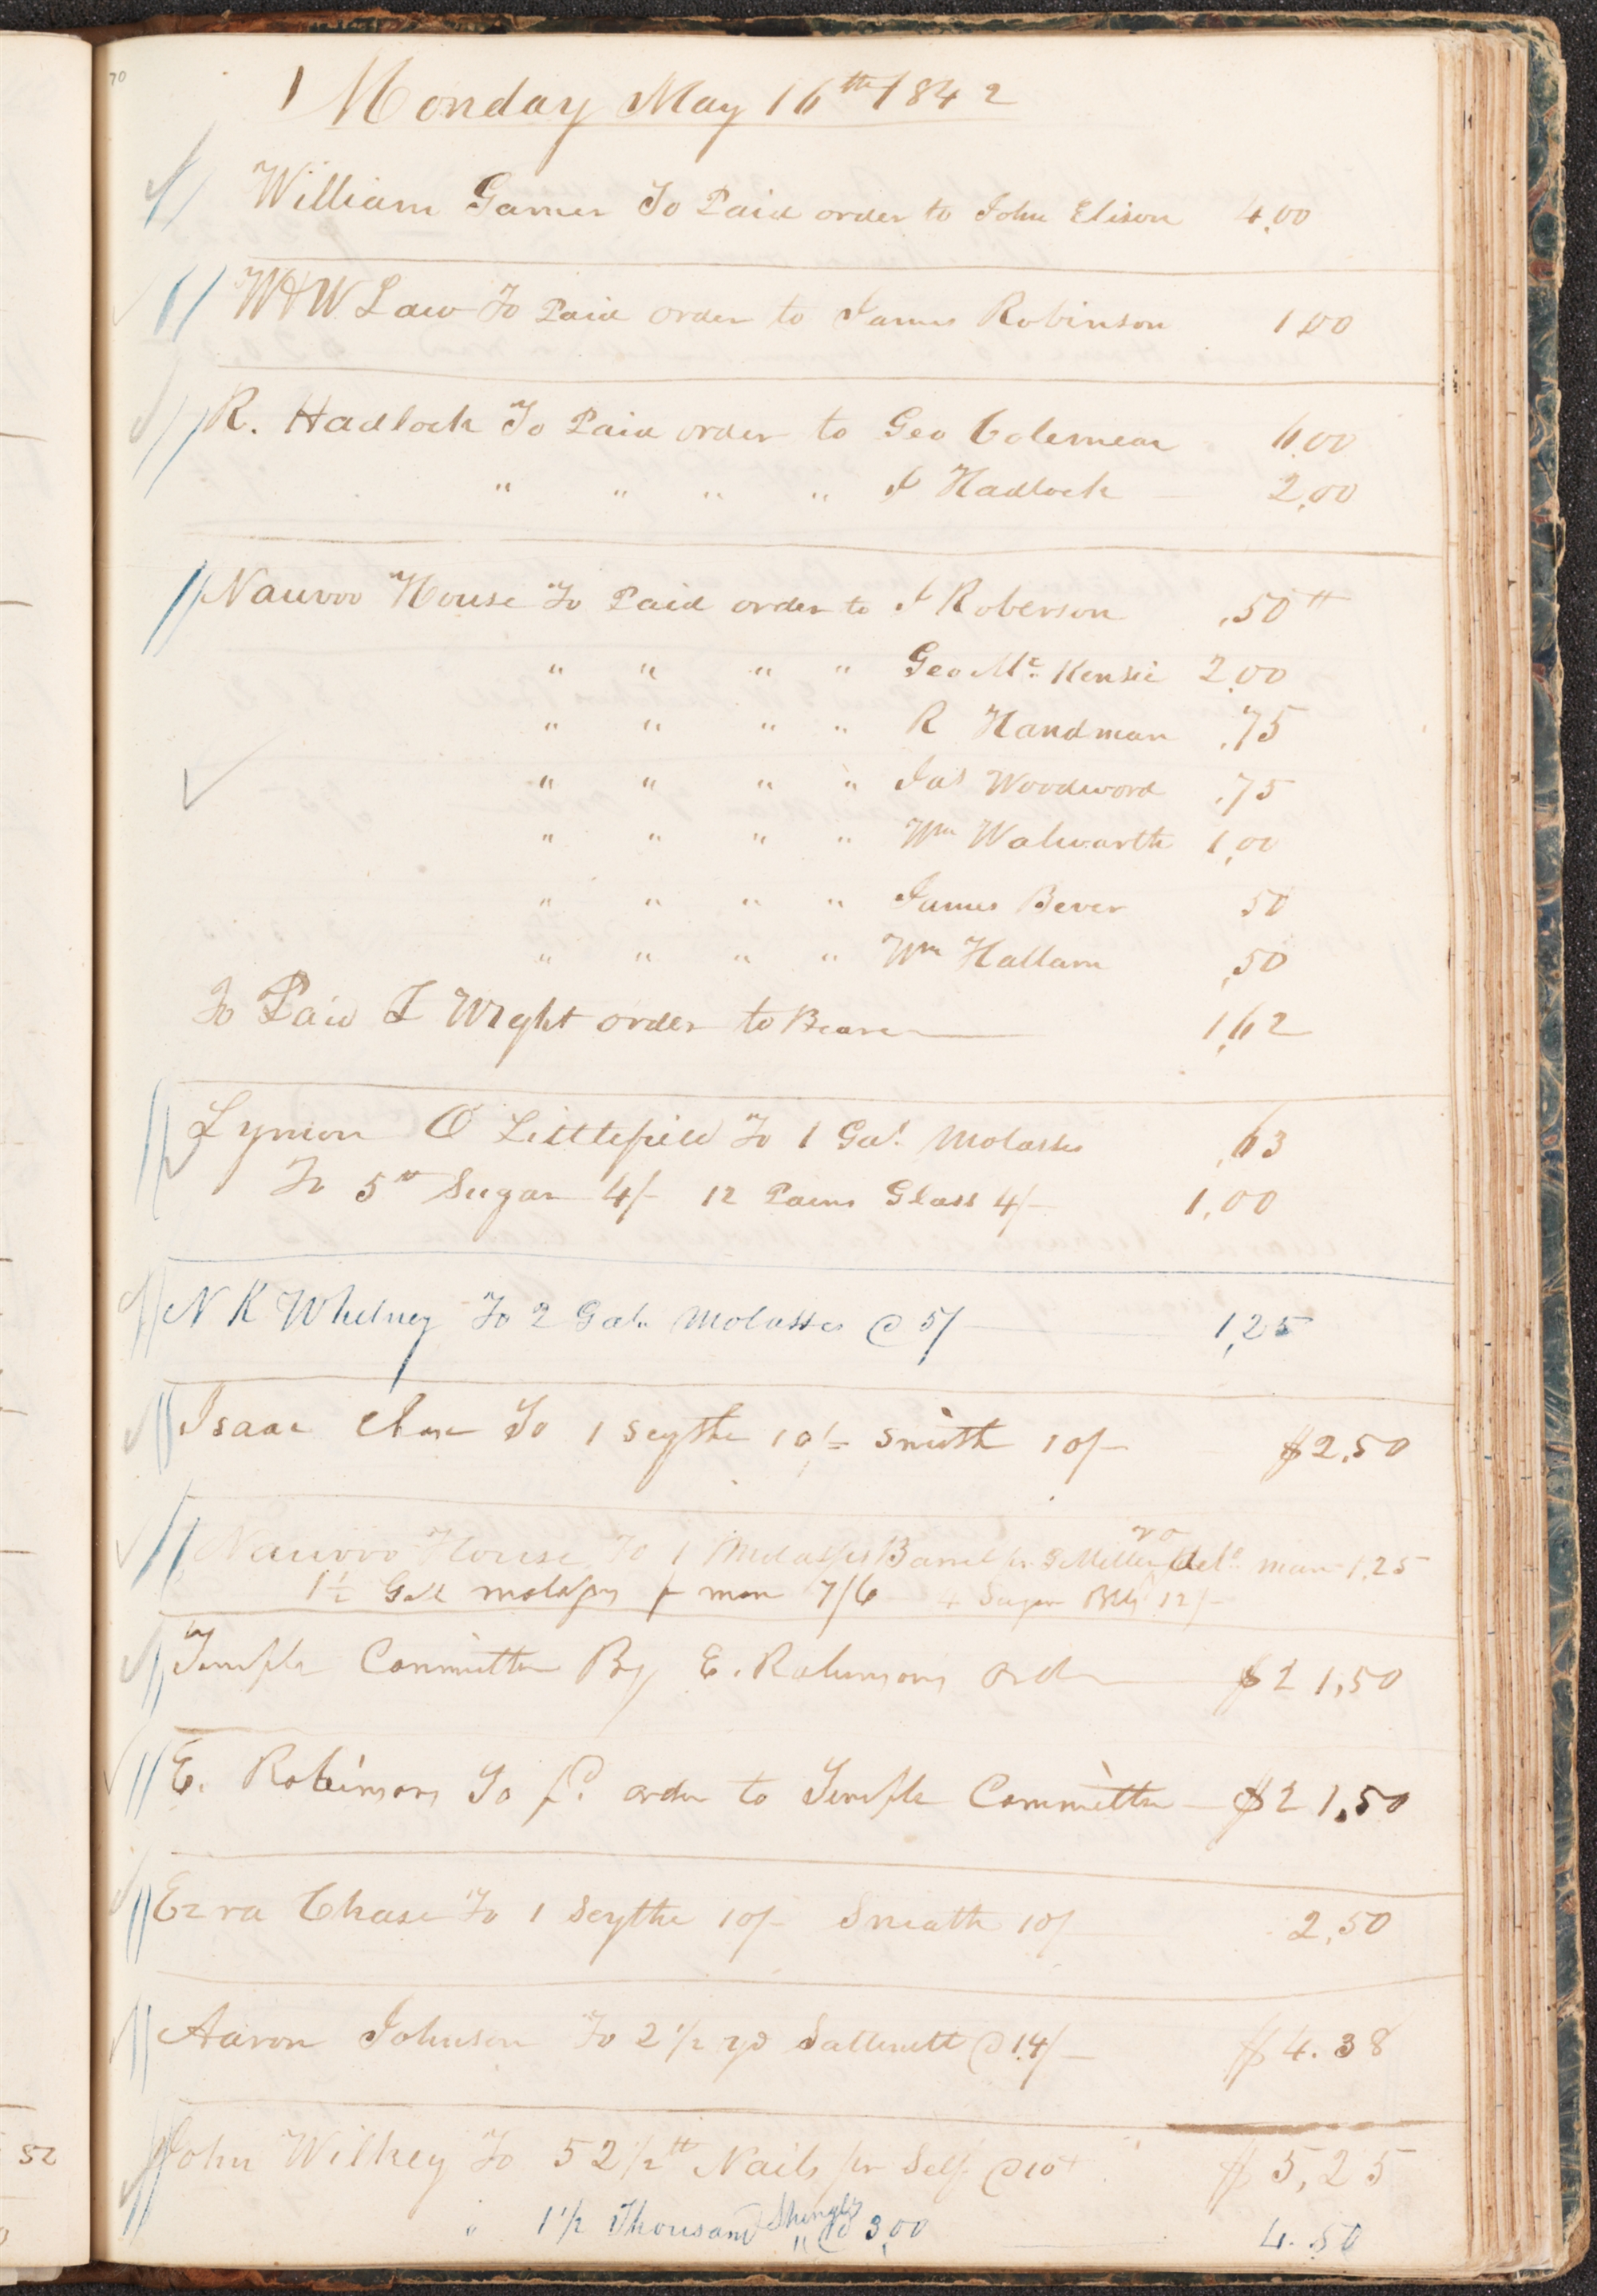 70
Monday May 16th 1842
William Garner To Paid order to John Elison 4,00
W & W Law To Paid order to James Robinson 1,00
R. Hadlock To Paid order to Geo Coleman 6,00
" " " " J Hadlock 2,00
Nauvoo House To Paid order to J Roberson ,50
" " " " Geo Mc Kensie 2,00
" " " " R Handman ,75
" " " " Jas Woodword ,75
" " " " Wm Walwarth 1,00
" " " " James Bever 50
" " " " Wm Hallam ,50
To Paid L Wight order to Bearer 1,62
Lyman O Littlefield To 1 Gal. Molasses ,63
To 5 Sugar 4/- 12 Pains Glass 4/- 1,00
N K Whitney To 2 Gals Molasses @ 5/ 1,25
Isaac Chase To 1 Scythe 10/- Sneath 10/- $2.50
Nauvoo House To 1 Molasses Barrel pr G Miller man 1,25
1½ Gall molasses pr man 7/6 4 Sugar Bbls 12/-
Temple Committee By E. Robinsons order $21,50
E. Robinson To pd. order to Temple Committee $21,50
Ezra Chase To 1 Scythe 10/- Sneath 10/ 2,50
Aaron Johnson To 2 1/2 yd Sattinett @ 14/- $4.38
John Wilkey To 52 1/2 tt Nails pr Self @ 10 $5,25
" 1 1/2 Thousand Shingles @ 3,00 4.50
52